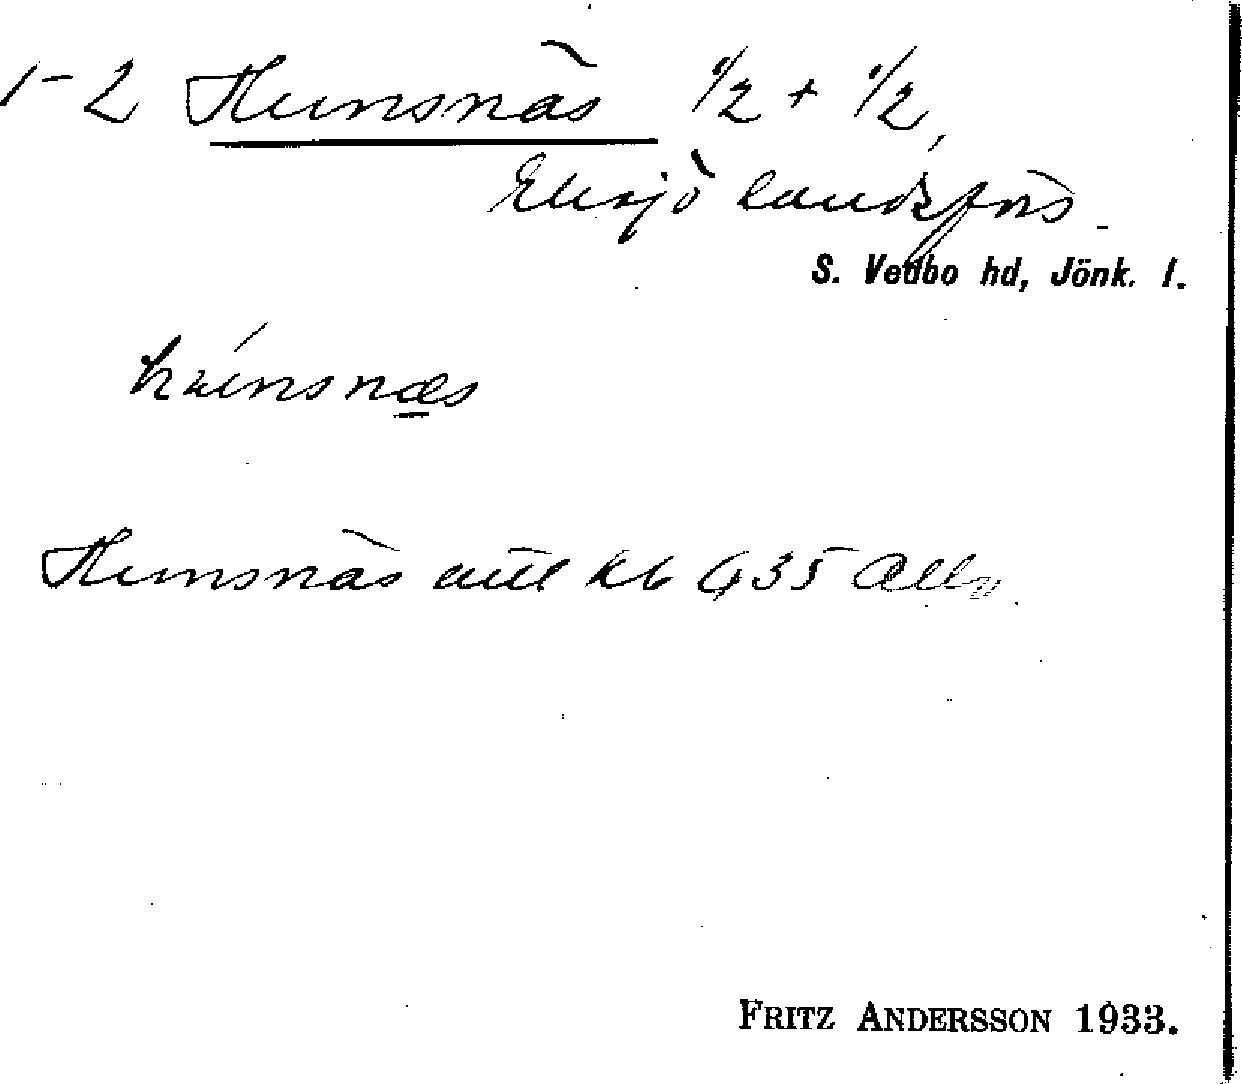 1-2 Hunsnäs 1/2 + 1/2,
Eksjö landsförs.
S. Vedbo hd, Jönk. l.
Hunsnäs uttl kb 635 Allm
FRITZ ANDERSSON 1933.